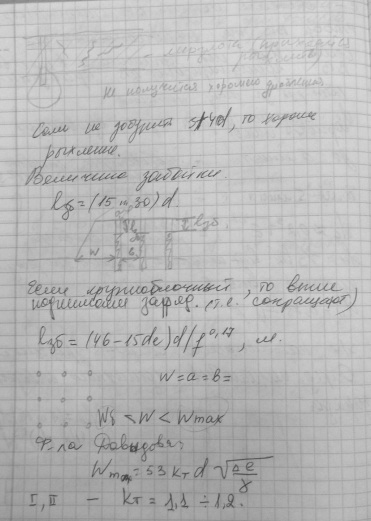 - мерзлота
Не получится хорошего дробления
Если не добурить , то хорошее
рыхление.
Величина забойки.
lзб = (15 ÷ 30) d
lзб
W
Если крупноблочный, то выше
поднимаем заряд. (т.е. сокращают)
lзб = (46 - 15de) d / f^0,17, м.
W = a = b =
< W < Wmax
Ф-ла Давыдова:
Wmax = 53 kт d √(Δe/γ)
I, II - kт = 1,1 ÷ 1,2.